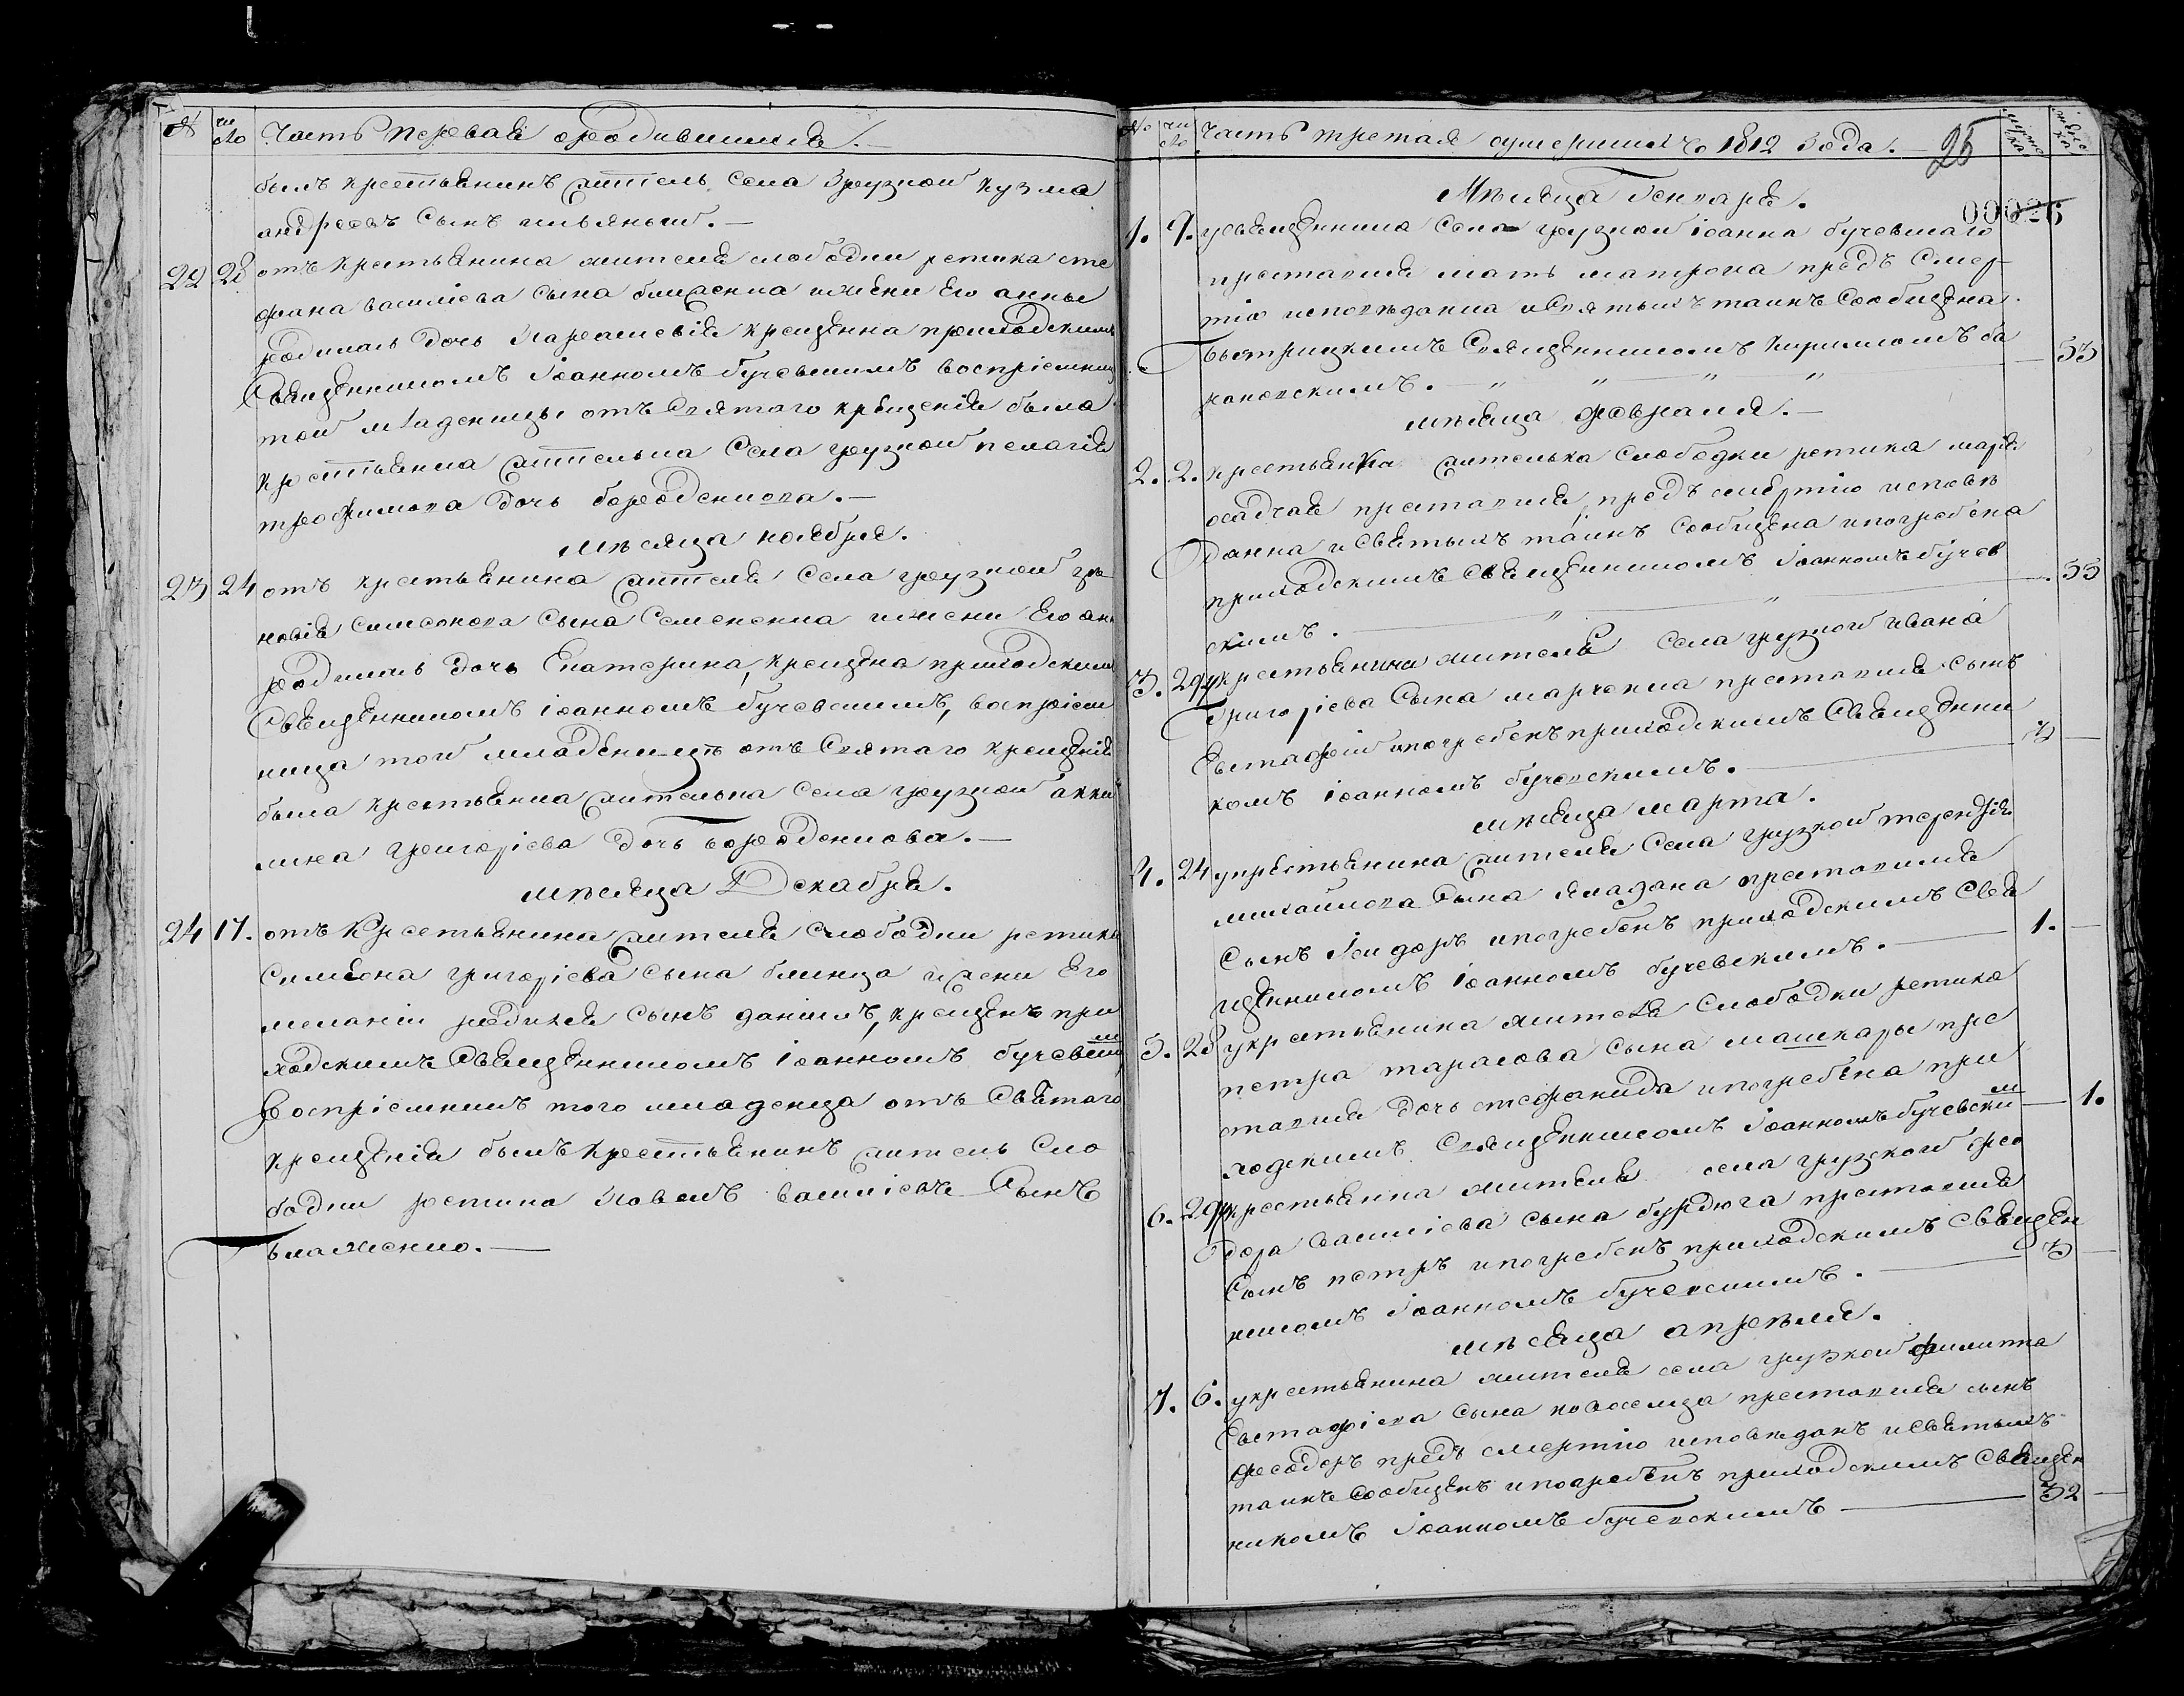 № число Часть первая ородившихся.
былъ крестьянинъ житель села Грузкой кузма
андреевъ сынъ ильяный.
22 28 отъ крестьянина жителя слободки ретика сте
фана василіева сына блаженка и жени Его анны
родилась дочь Параскевія крещенна приходскимъ
Священникомъ Іоанномъ бучевскимъ воспріемни
той младеницы отъ Святого крещенія была
крестьянка жителька села грузкой пелагія
трофимова дочь бороденкова.
мѣсяца ноября.
23 24 отъ крестьянина жителя села грузкой зи
новія симеонова сына семененка и жени Его ан
родилась дочь Екатерина, крещена приходскимъ
Священникомъ іоанномъ бучевскимъ, воспріем
ница той младеницѣ отъ Святаго крещенія
была крестьянка жителька села грузкой акки
лина григоріева дочь бороденкова.
мѣсяца Декабря.
24 17. отъ Крестьянина жителя слободки ретика
симеона григоріева сына блинца и жени Его
меланіи родился сынъ даніилъ, крещенъ при
ходскимъ Священникомъ іоанномъ бучевским
Воспріемникъ того младенца отъ Святаго
крещенія былъ крестьянинъ житель сло
бодки ретика Павелъ василіевъ Сынъ
блаженко.
№ число Часть третая оумершихъ 1812 Года. 25 мужеска женска
00026
Мѣсяца Генваря.
1. 9. усвященника села грузкой іоанна бучевскаго
преставися мать матрона предъ смер
тію исповѣданна и Святыхъ таинъ сообщенна
быстрицкимъ Священникомъ кириломъ ба
рановскимъ. 53
мѣсяца февраля.
2. 2. крестьянка жителька слободки ретика марія
осадчая преставися, предъ смертію исповѣ
данна и Святыхъ таинъ сообщена и погребена
приходскимъ священникомъ Іоанномъ бучев
скимъ. 55
3. 29 укрестьянина жителя села грузкой ивана
Григоріева сына марченка преставися сынъ
Евстафій и погребенъ приходскимъ Священни
комъ іоанномъ бучевскимъ. 3
мѣсяца марта.
4. 24 укрестьянина жителя села грузкой терентія
михайлова сына ямадана преставися
сынъ Ісидоръ и погребенъ приходскимъ Свя
щенникомъ іоанномъ бучевскимъ. 1.
5. 28 укрестьянина жителя слободки ретика
петра тарасова сына машкары пре
ставися дочь стефанида и погребена при
ходскимъ Священникомъ Іоанномъ бучевским 1.
6. 29 укрестьянина жителя села грузкой фео
дора василіева сына бурдюга преставися
сынъ петръ и погребенъ приходскимъ священ
никомъ Іоанномъ бучевскимъ. 3
мѣсяца апрѣля.
7. 6. укрестьянина жителя села грузкой филиппа
Евстафіева сына новоселца преставися сынъ
феодоръ предъ смертію исповѣданъ и Святыхъ
таинъ сообщенъ и погребенъ приходскимъ Священ
никомъ Іоанномъ бучевскимъ 32